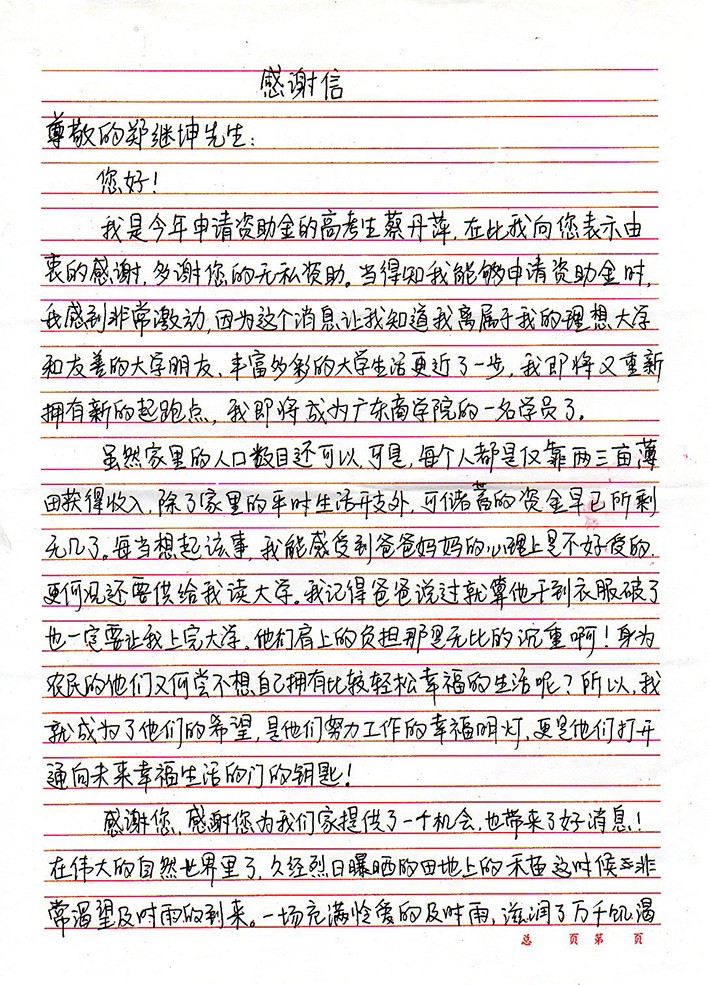 感谢信
尊敬的郑继坤先生：
您好！
我是今年申请资助金的高考生蔡丹萍，在此我向您表示由
衷的感谢，多谢您的无私资助。当得知我能够申请资助金时，
我感到非常激动，因为这个消息让我知道我离属于我的理想大学
和友善的大学朋友、丰富多彩的大学生活更近了一步，我即将又重新
拥有新的起跑点，我即将成为广东商学院的一名学员了。
虽然家里的人口数目还可以，可是，每个人都是仅靠两三亩薄
田获得收入，除了家里的平时生活开支外，可储蓄的资金早已所剩
无几了。每当想起该事，我能感受到爸爸妈妈的心理上是不好受的，
更何况还要供给我读大学。我记得爸爸说过就算他干到衣服破了
也一定要让我上完大学。他们肩上的负担那是无比的沉重啊！身为
农民的他们又何尝不想自己拥有比较轻松幸福的生活呢？所以，我
就成为了他们的希望，是他们努力工作的幸福明灯，更是他们打开
通向未来幸福生活的门的钥匙！
感谢您，感谢您为我们家提供了一个机会，也带来了好消息！
在伟大的自然世界里了，久经烈日曝晒的田地上的禾苗这时候非
常渴望及时雨的到来。一场充满怜爱的及时雨，滋润了万千饥渴
总 页 第 页